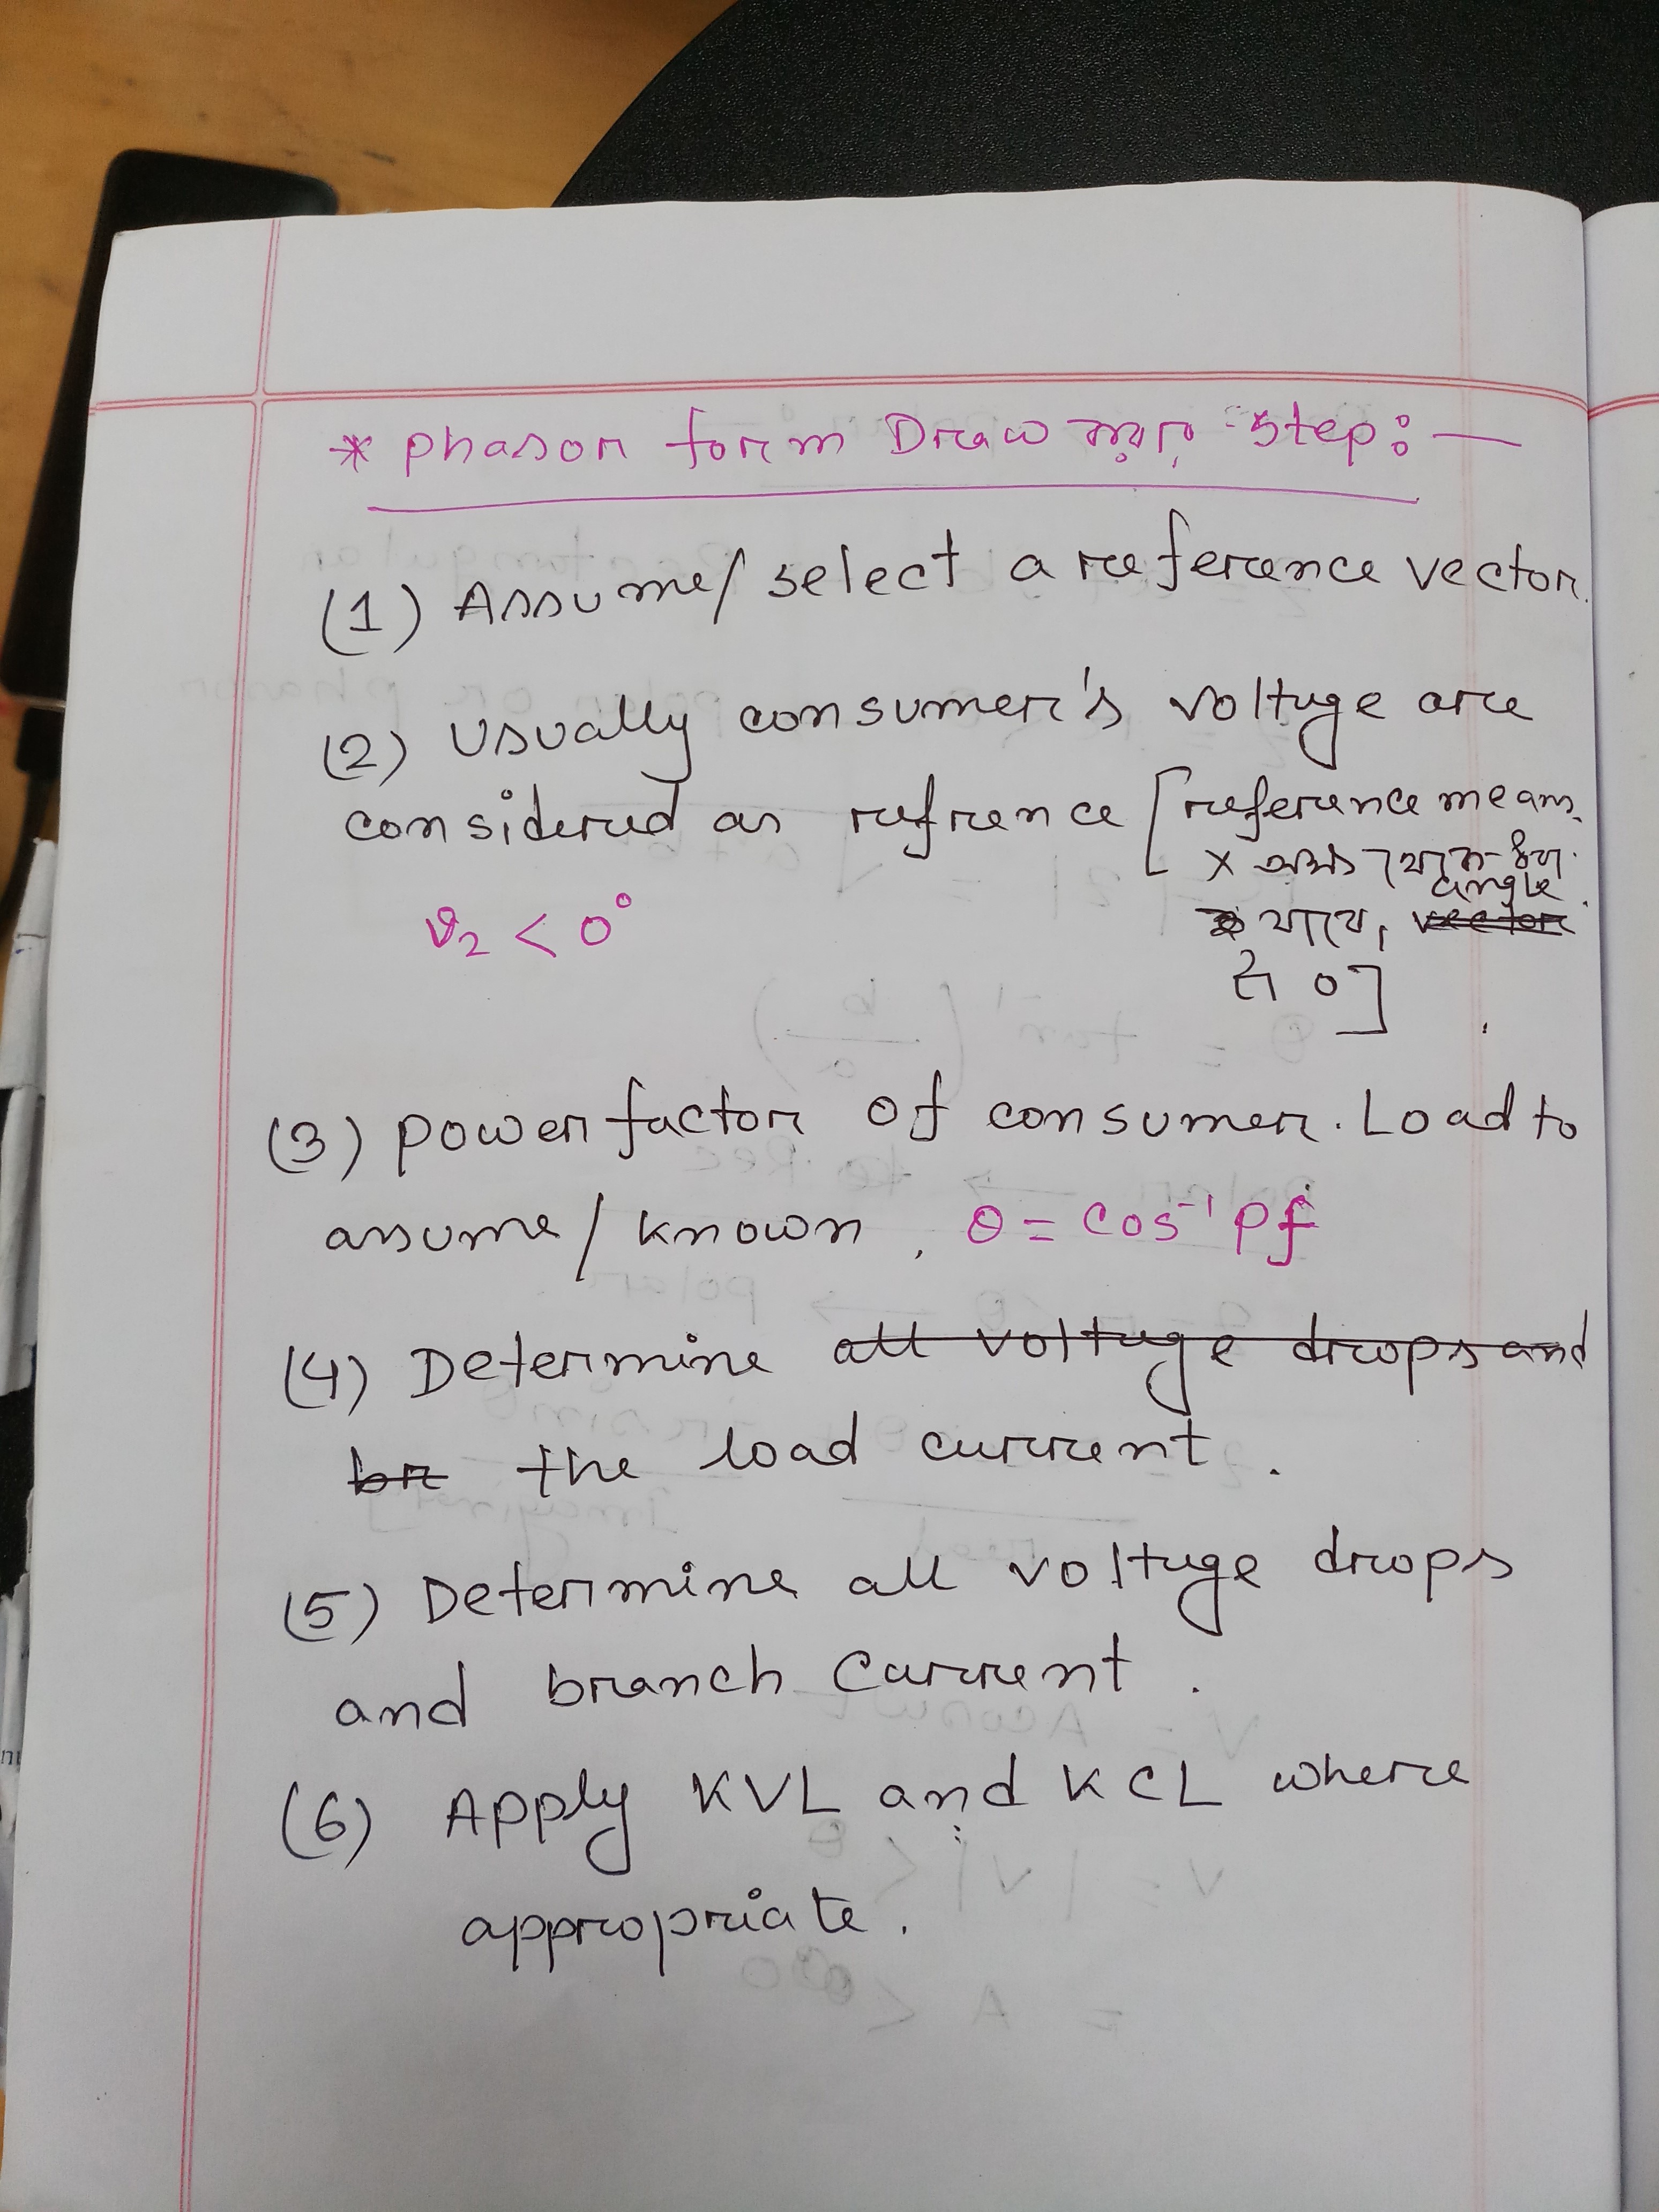 * Phasor form Draw করার step:—
(1) Assume/ select a reference vector.
(2) Usually consumer's voltage are
considered as refrence [reference means
x অক্ষ
angle
যাবে,
0]
v₂ < 0°
(3) power factor of consumer. Load to
assume/ known , θ = cos⁻¹ pf
(4) Determine all voltage drops and
br the load current .
(5) Determine all voltage drops
and branch current .
(6) Apply KVL and KCL where
appropriate .